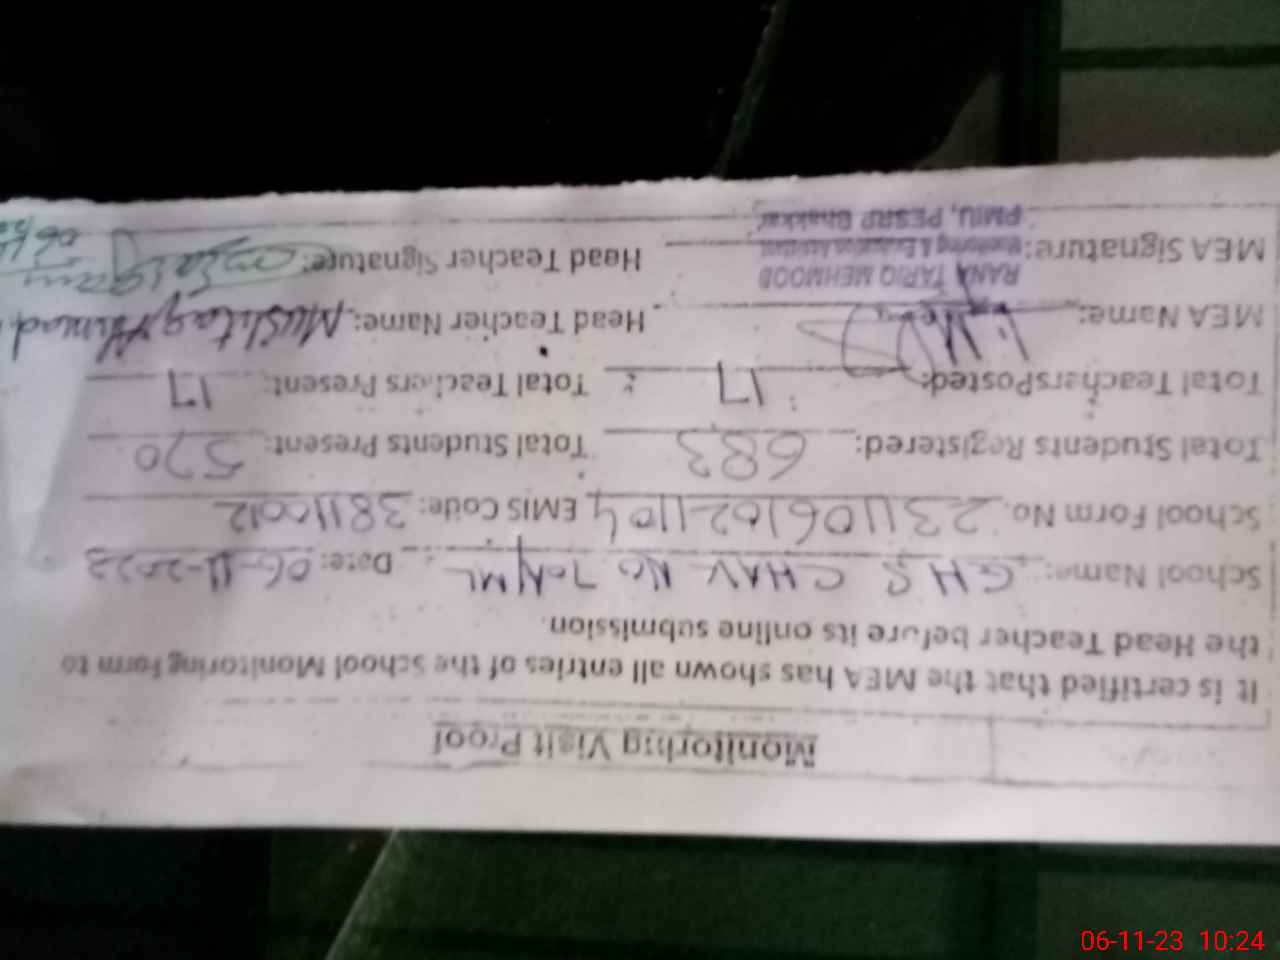 Monitoring Visit Proof
It is certified that the MEA has shown all entries of the School Monitoring Form to
the Head Teacher before its online submission.
School Name: G.H.S CHAK NO 70/ML Date: 06-11-2023
School Form No. 2311061021104 EMIS Code: 38110012
Total Students Registered: 683 Total Students Present: 570
Total Teachers Posted: 17 Total Teachers Present: 17
MEA Name: Head Teacher Name: Mushtaq Ahmad
MEA Signature: Head Teacher Signature:
RANA TARIQ MEHMOOD
Monitoring & Evaluation Assistant
PMIU, PESRP Bhakkar
06-11-23 10:24